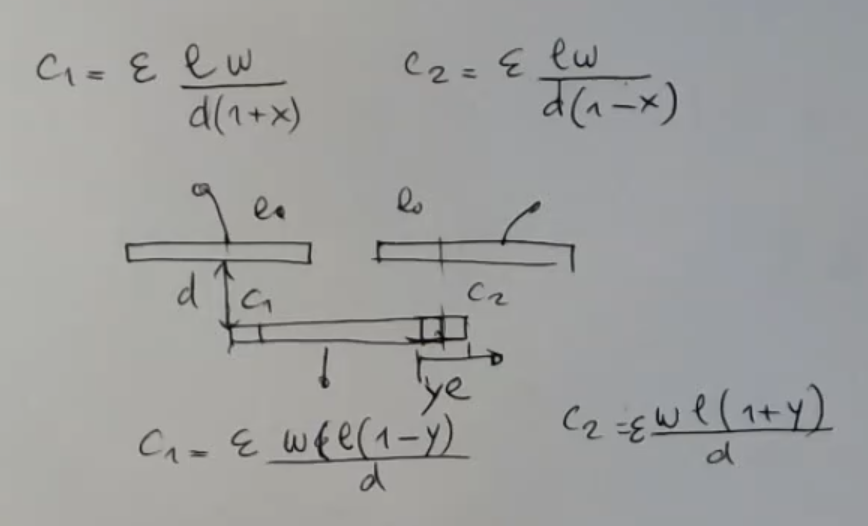 C₁ = ε ℓw / d(1+x)
C₂ = ε ℓw / d(1-x)
ℓ₀ ℓ₀
d C₁ C₂
yℓ
C₁ = ε wℓ(1-y) / d
C₂ = ε wℓ(1+y) / d